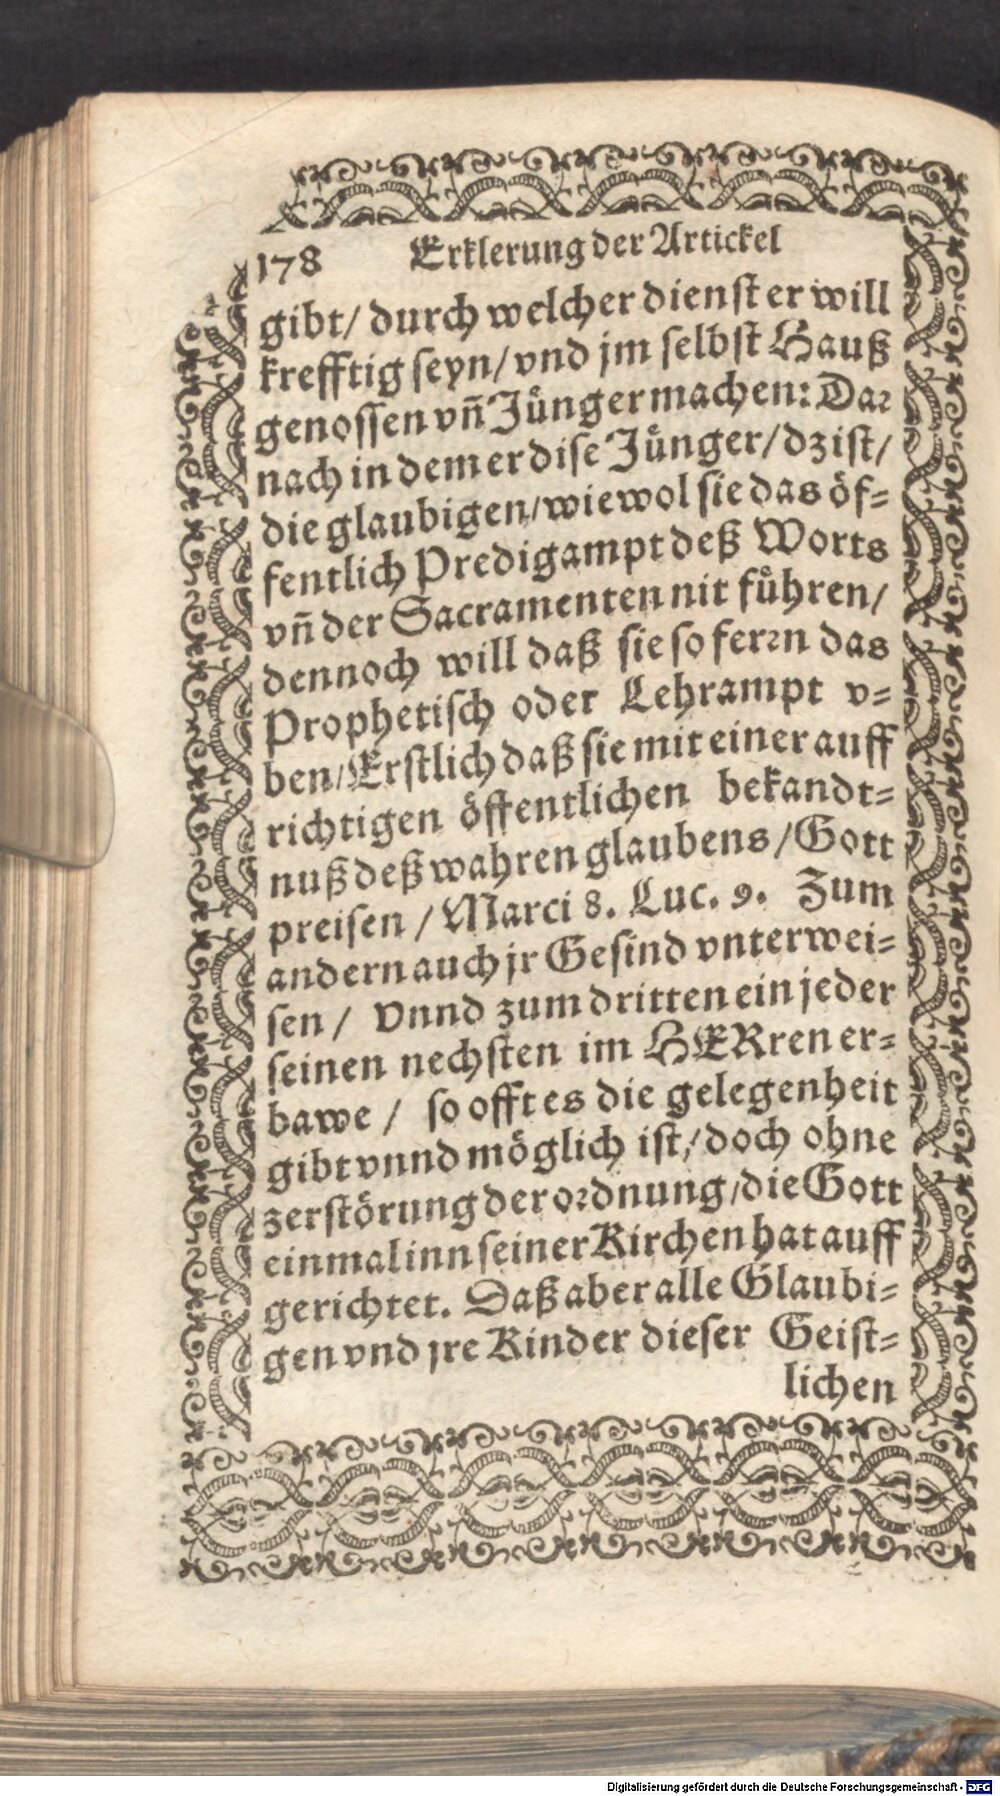 178 Erklerung der Artickel
gibt/ durch welcher dienst er will
krefftig seyn/ vnd jm selbst Hauß
genossen vn̄ Jünger machen: Dar
nach in dem er dise Jünger/ dz ist/
die glaubigen/ wiewol sie das öf-
fentlich Predigampt deß Worts
vn̄ der Sacramenten nit führen/
dennoch will daß sie so ferrn das
Prophetisch oder Lehrampt v-
ben/ Erstlich daß sie mit einer auff
richtigen öffentlichen bekandt-
nuß deß wahren glaubens/ Gott
preisen / Marci 8. Luc. 9. Zum
andern auch jr Gesind vnterwei-
sen / Vnnd zum dritten ein jeder
seinen nechsten im HERren er-
bawe / so offt es die gelegenheit
gibt vnnd möglich ist/ doch ohne
zerstörung der ordnung/ die Gott
einmal inn seiner Kirchen hat auff
gerichtet. Daß aber alle Glaubi-
gen vnd jre Kinder dieser Geist-
lichen
Digitalisierung gefördert durch die Deutsche Forschungsgemeinschaft - DFG